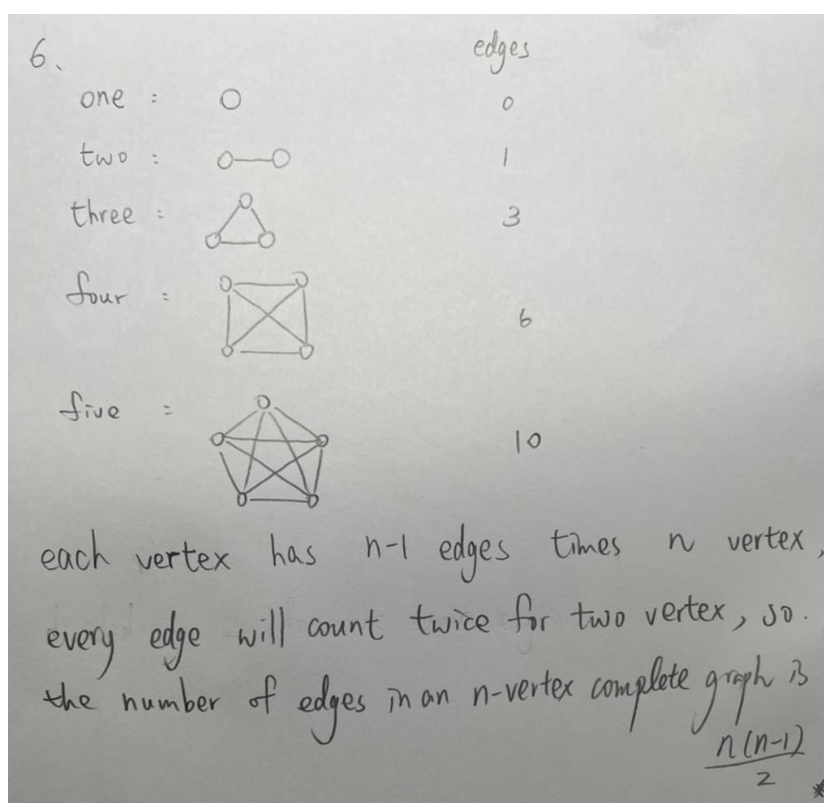 6、 edges
one : 0
two : 1
three : 3
four : 6
five : 10
each vertex has n-1 edges times n vertex,
every edge will count twice for two vertex, so.
the number of edges in an n-vertex complete graph is
n(n-1)
2